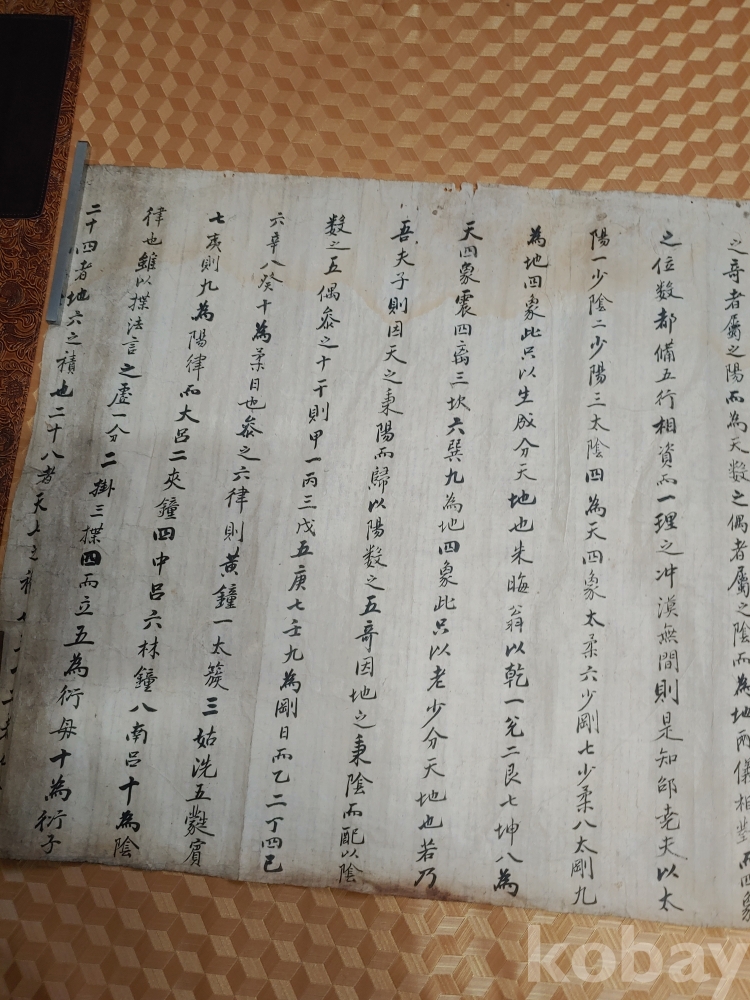 之奇者屬之陽而為天數之偶者屬之陰而為地兩儀相對而四象
之位數都備五行相資而一理之冲漠無間則是知邵堯夫以太
陽一少陰二少陽三太陰四為天四象太柔六少剛七少柔八太剛九
為地四象此只以生成分天地也朱晦翁以乾一兌二艮七坤八為
天四象震四离三坎六巽九為地四象此只以老少分天地也若乃
吾夫子則因天之秉陽而歸以陽数之五奇因地之秉陰而配以陰
数之五偶叅之十干則甲一丙三戊五庚七壬九為剛日而乙二丁四己
六辛八癸十為柔日也叅之六律則黃鐘一太簇三姑洗五蕤賓
七夷則九為陽律而大呂二夾鐘四中呂六林鐘八南呂十為陰
律也雖以揲法言之虛一分二掛三揲四而立五為衍母十為衍子
二十四者地六之積也二十八者天七之積
kobay